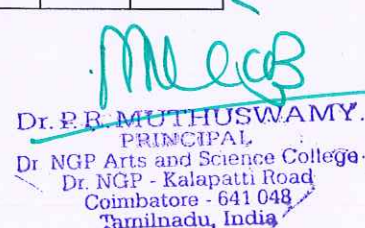 Dr. P.R. MUTHUSWAMY.
PRINCIPAL
Dr NGP Arts and Science College.
Dr. NGP - Kalapatti Road
Coimbatore - 641 048
Tamilnadu, India